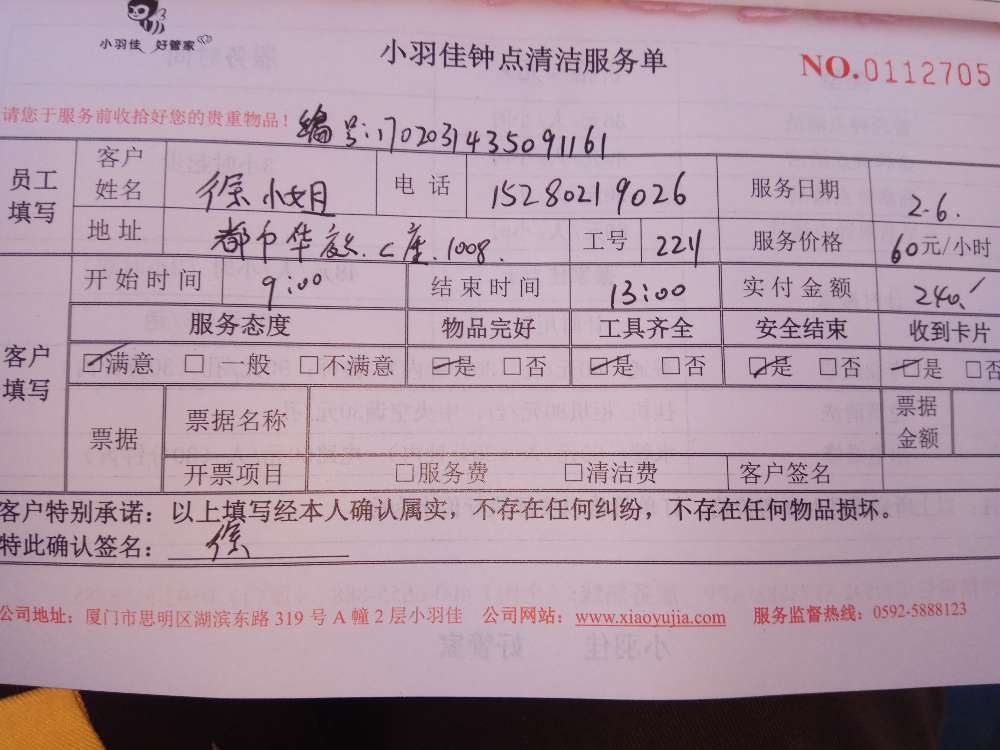 小羽佳 好管家
小羽佳钟点清洁服务单
NO.0112705
请您于服务前收拾好您的贵重物品！
编号:170203143509 1161
员工填写
客户姓名 徐小姐 电话 15280219026 服务日期 2.6.
地址 都市华庭.C座.1008. 工号 2211 服务价格 60元/小时
客户填写
开始时间 9:00 结束时间 13:00 实付金额 240.
服务态度 物品完好 工具齐全 安全结束 收到卡片
☑满意 □ 一般 □不满意 ☑是 □否 ☑是 □否 ☑是 □否 ☑是 □否
票据 票据名称 票据金额
开票项目 □服务费 □清洁费 客户签名
客户特别承诺：以上填写经本人确认属实，不存在任何纠纷，不存在任何物品损坏。
特此确认签名：徐
公司地址：厦门市思明区湖滨东路 319 号 A 幢 2 层小羽佳 公司网站：www.xiaoyujia.com 服务监督热线：0592-5888123